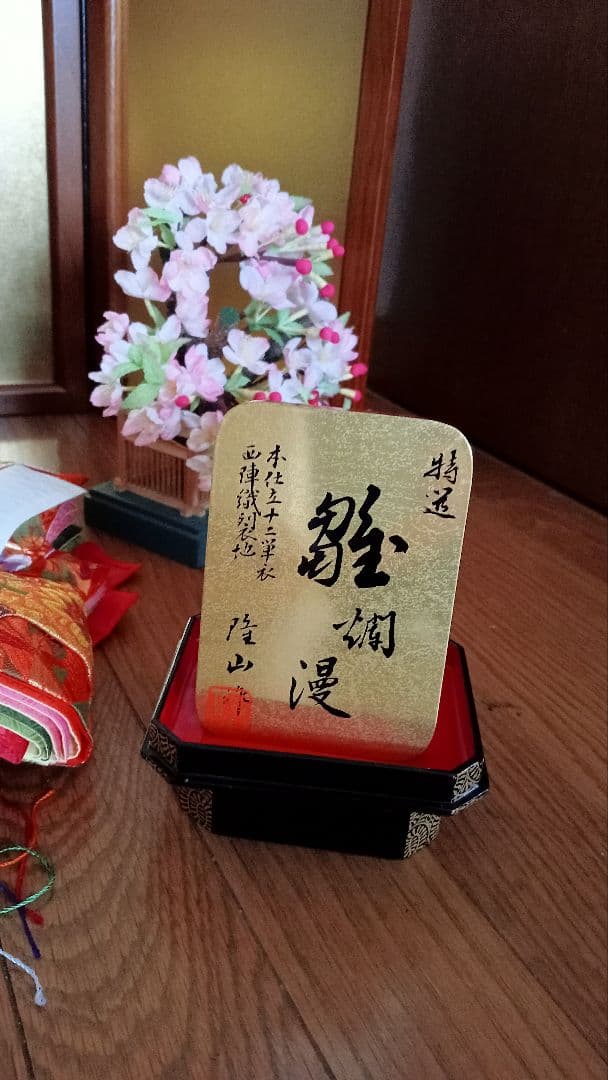 特選
雛
爛
漫
本仕立十二単衣
西陣織別製地
隆山
作